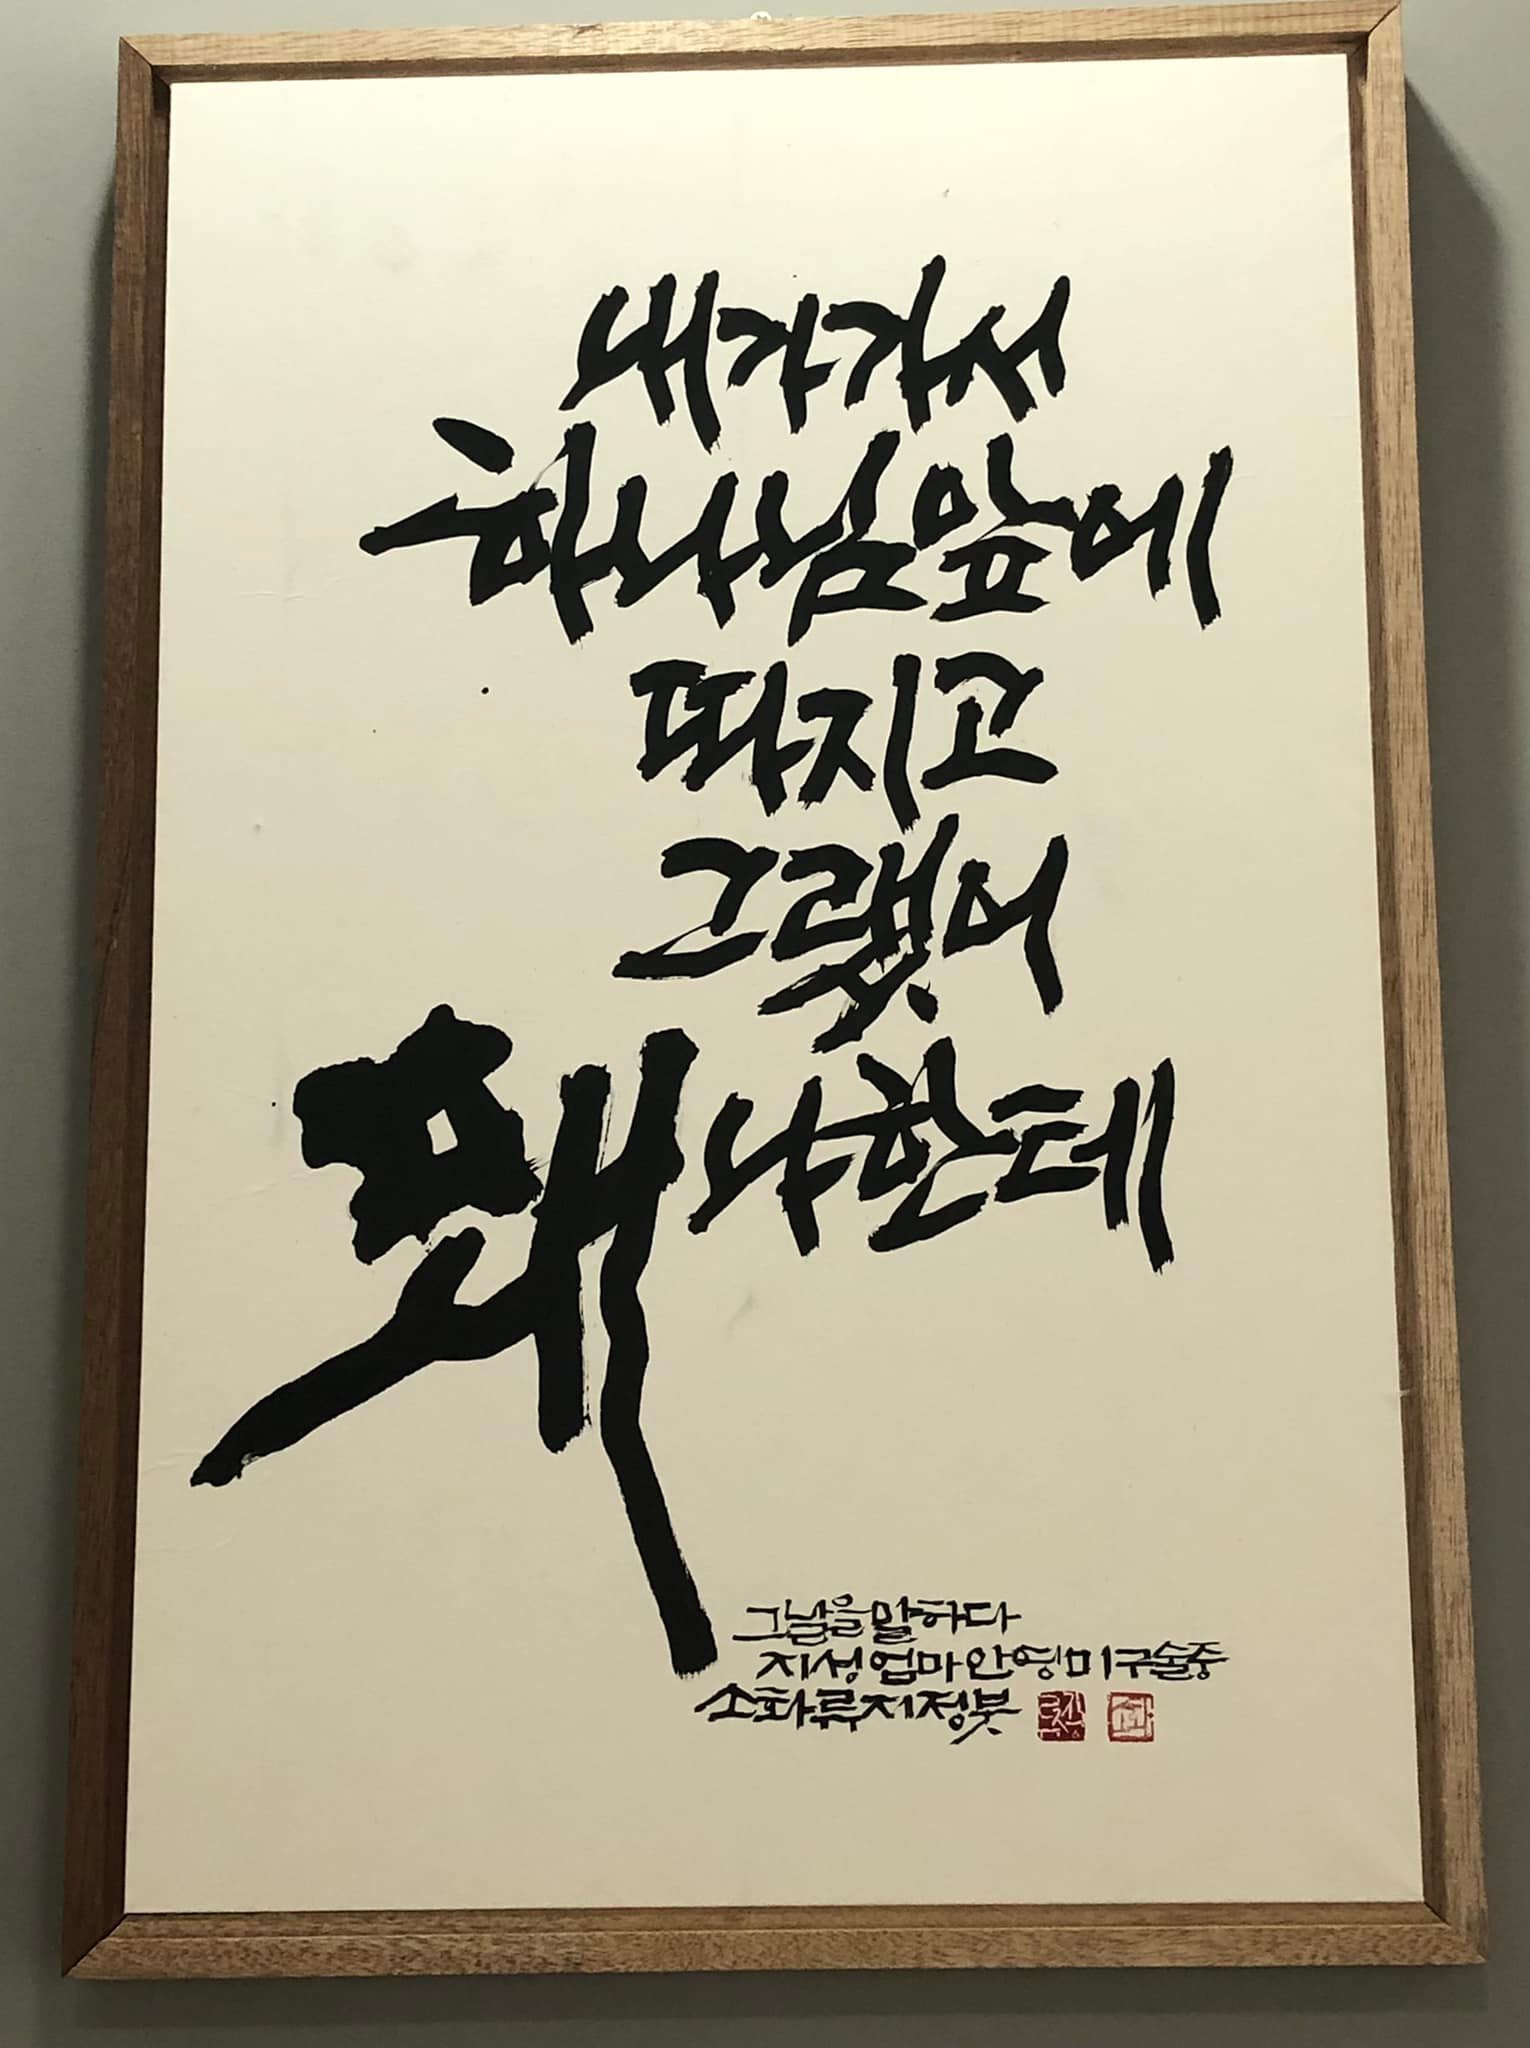 내가 가서
하나님 앞에
따지고
그랬어
왜 나한테
그날을 말하다
지성엄마 안영미 구술 중
소화 류지정 붓
소화